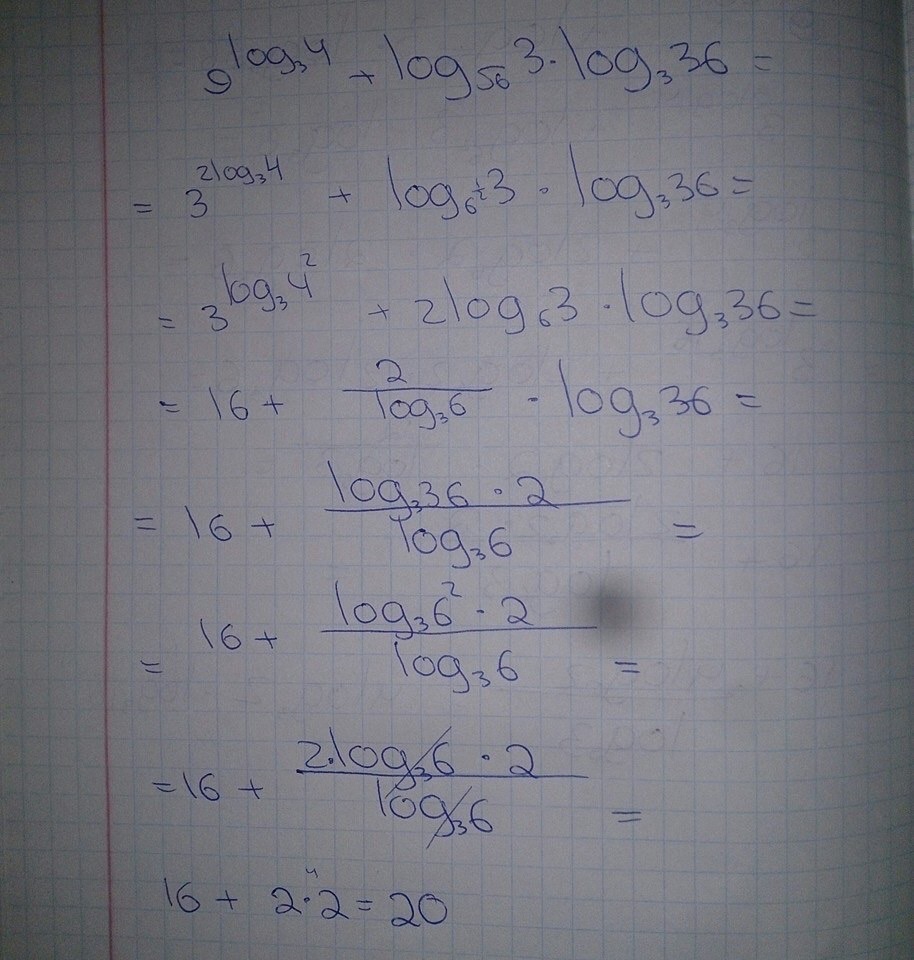 9^{log₃4} + log_{√6} 3 · log₃ 36 =
= 3^{2log₃4} + log_{6^{1/2}} 3 · log₃ 36 =
= 3^{log₃4²} + 2log₆ 3 · log₃ 36 =
= 16 + \frac{2}{log₃6} · log₃ 36 =
= 16 + \frac{log₃36 · 2}{log₃6} =
= 16 + \frac{log₃6² · 2}{log₃6} =
= 16 + \frac{2·log₃6 · 2}{log₃6} =
16 + 2·2 = 20